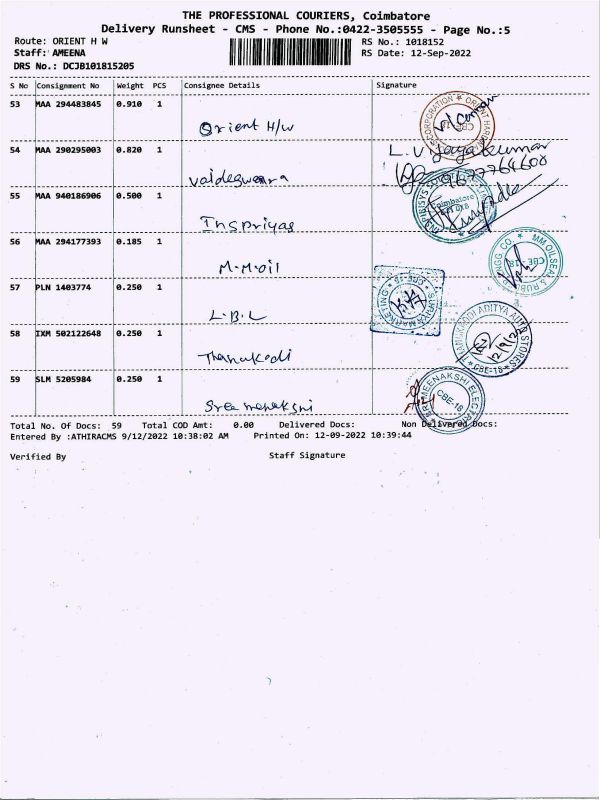 THE PROFESSIONAL COURIERS, Coimbatore
Delivery Runsheet - CMS - Phone No.:0422-3505555 - Page No.:5
Route: ORIENT H W RS No.: 1018152
Staff: AMEENA RS Date: 12-Sep-2022
DRS No.: DCJB101815205
S No Consignment No Weight PCS Consignee Details Signature
53 MAA 294483845 0.910 1
Orient H/w
54 MAA 290295003 0.820 1
L. Vijayakumar
9677764600
55 MAA 940186906 0.500 1
Inspriyas
56 MAA 294177393 0.185 1
M.M.oil
57 PLN 1403774 0.250 1
L.B.L
58 IXM 502122648 0.250 1
Thanakodi
12/9/22
CBE-18
59 SLM 5205984 0.250 1
CBE-18
Sree menakshi
Total No. Of Docs: 59 Total COD Amt: 0.00 Delivered Docs: Non Delivered Docs:
Entered By :ATHIRACMS 9/12/2022 10:38:02 AM Printed On: 12-09-2022 10:39:44
Verified By Staff Signature